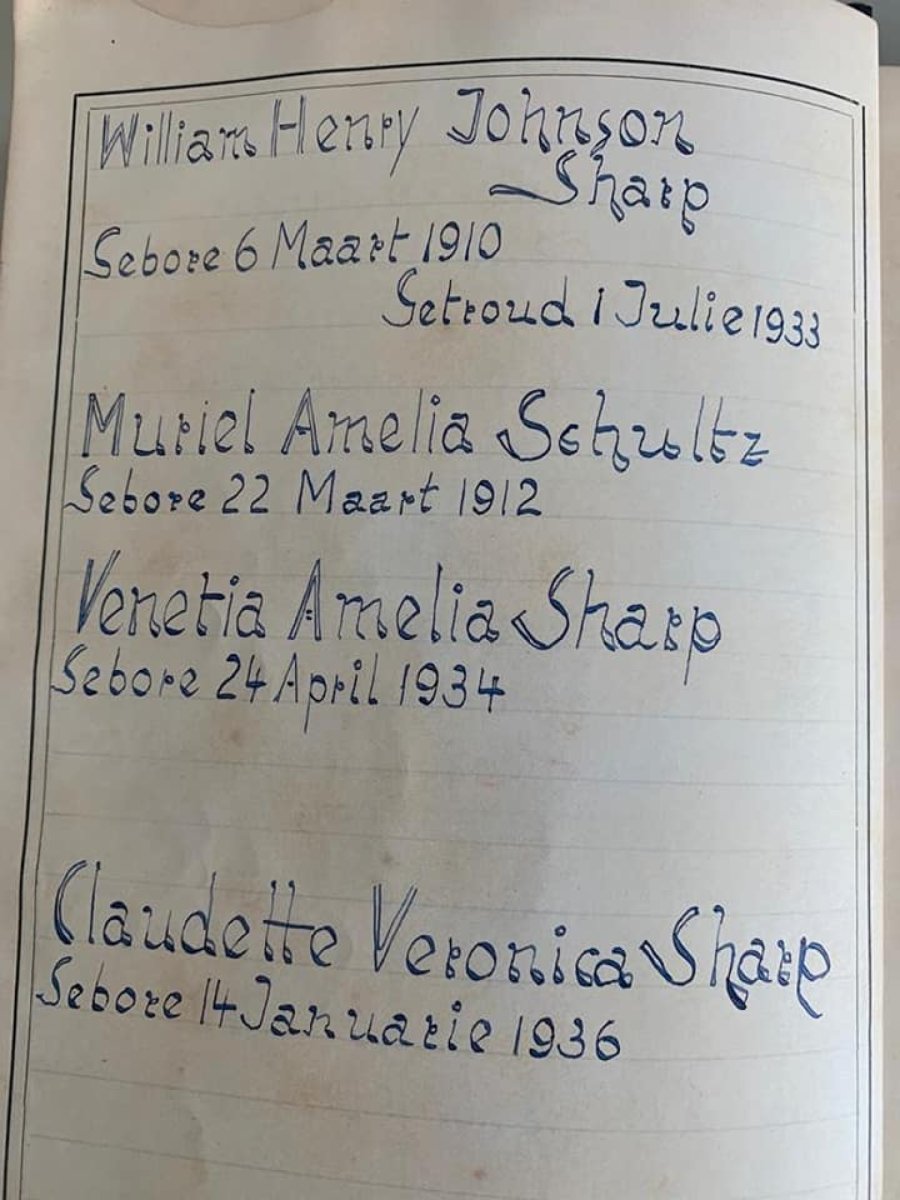 William Henry Johnson
Sharp
Gebore 6 Maart 1910
Getroud 1 Julie 1933
Muriel Amelia Schultz
Gebore 22 Maart 1912
Venetia Amelia Sharp
Gebore 24 April 1934
Claudette Veronica Sharp
Gebore 14 Januarie 1936